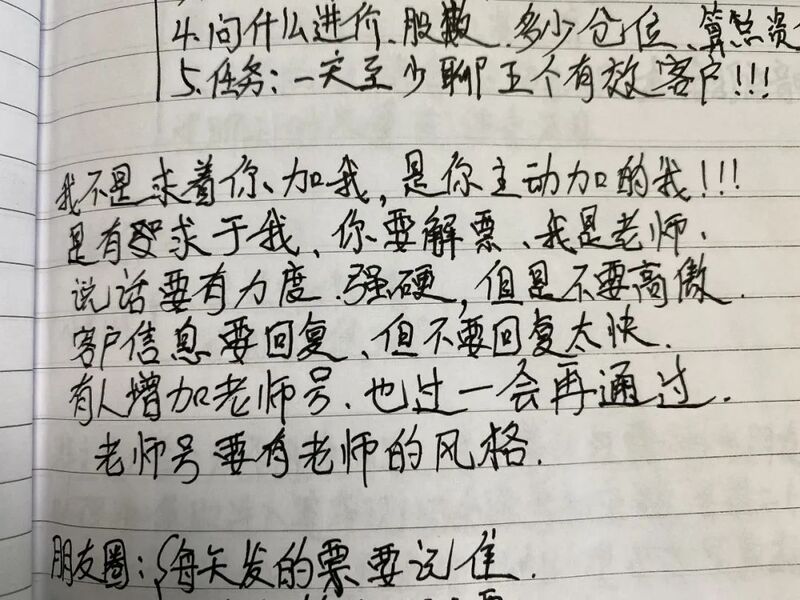 4.问什么进价、股数、多少仓位、算总资
5.任务:一天至少聊五个有效客户!!!
我不是求着你、加我,是你主动加的我!!!
是有求于我、你要解票、我是老师、
说话要有力度.强硬,但是不要高傲.
客户信息要回复、但不要回复太快.
有人增加老师号、也过一会再通过.
老师号要有老师的风格.
朋友圈:每天发的票要记住.